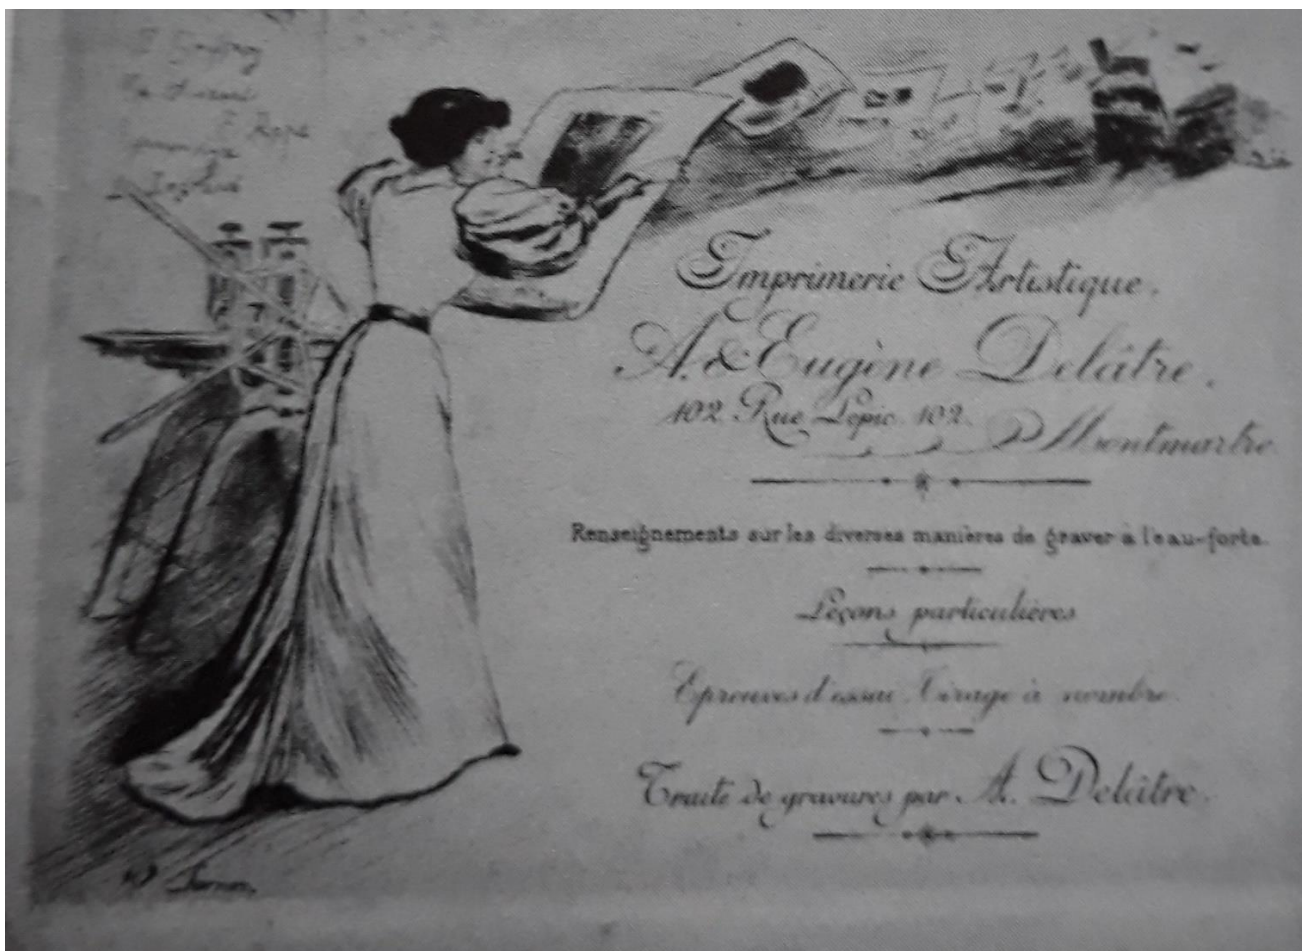 Imprimerie Artistique.
A. & Eugène Delâtre.
102. Rue Lepic. 102.
Montmartre
Renseignements sur les diverses manières de graver à l'eau-forte.
Leçons particulières
Epreuves d'essai. Tirage à nombre.
Traité de gravures par A. Delâtre.